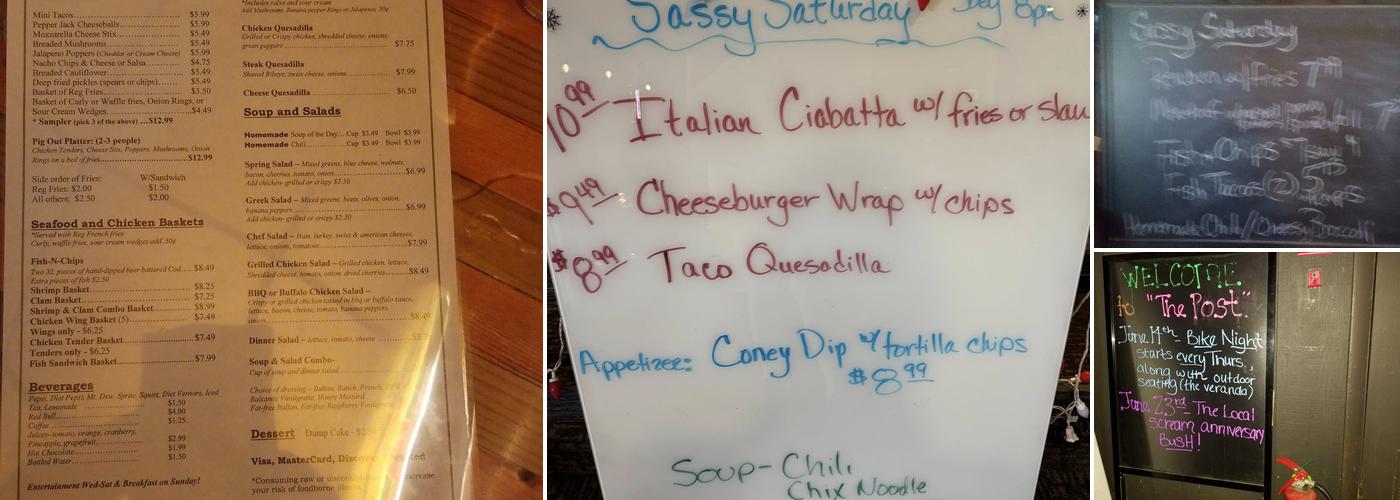 Mini Tacos $5.99
Pepper Jack Cheeseballs $5.49
Mozzarella Cheese Stix $5.49
Breaded Mushrooms $5.49
Jalapeno Poppers (Cheddar or Cream Cheese) $5.99
Nacho Chips & Cheese or Salsa $4.75
Breaded Cauliflower $5.49
Deep fried pickles (spears or chips) $5.49
Basket of Reg Fries $3.50
Basket of Curly or Waffle fries, Onion Rings, or
Sour Cream Wedges $4.49
* Sampler (pick 3 of the above) ...$12.99
Pig Out Platter: (2-3 people)
Chicken Tenders, Cheese Stix, Poppers, Mushrooms, Onion
Rings on a bed of fries $12.99
Side order of Fries: W/Sandwich
Reg Fries: $2.00 $1.50
All others: $2.50 $2.00
Seafood and Chicken Baskets
*Served with Reg French fries
Curly, waffle fries, sour cream wedges add .50¢
Fish-N-Chips
Two XL pieces of hand-dipped beer battered Cod.... $8.49
Extra pieces of fish $2.50
Shrimp Basket $8.25
Clam Basket $7.25
Shrimp & Clam Combo Basket $8.99
Chicken Wing Basket (5) $7.49
Wings only - $6.25
Chicken Tender Basket $7.49
Tenders only - $6.25
Fish Sandwich Basket $7.99
Beverages
Pepsi, Diet Pepsi, Mt. Dew, Sprite, Squirt, Diet Vernors, Iced
Tea, Lemonade $1.50
Red Bull $4.00
Coffee $1.25
Juices- tomato, orange, cranberry,
Pineapple, grapefruit $2.99
Hot Chocolate $1.99
Bottled Water $1.50
Entertainment Wed-Sat & Breakfast on Sunday!
*Includes salsa and sour cream
Add Mushrooms, Banana pepper Rings or Jalapenos, 50¢
Chicken Quesadilla
Grilled or Crispy chicken, shredded cheese, onions,
green peppers $7.75
Steak Quesadilla
Shaved Ribeye, swiss cheese, onions $7.99
Cheese Quesadilla $6.50
Soup and Salads
Homemade Soup of the Day....Cup $3.49 Bowl $3.99
Homemade Chili Cup $3.49 Bowl $3.99
Spring Salad – Mixed greens, blue cheese, walnuts,
bacon, cherries, tomato, onion $6.99
Add chicken- grilled or crispy $2.50
Greek Salad – Mixed greens, beets, olives, onion,
banana peppers $6.99
Add chicken- grilled or crispy $2.50
Chef Salad – Ham, turkey, swiss & american cheeses,
lettuce, onions, tomatoes $7.99
Grilled Chicken Salad – Grilled chicken, lettuce,
Shredded cheese, tomato, onion, dried cherries $8.49
BBQ or Buffalo Chicken Salad –
Crispy or grilled chicken tossed in bbq or buffalo sauce,
lettuce, bacon, cheese, tomato, banana peppers,
onion $8.49
Dinner Salad – lettuce, tomato, cheese
Soup & Salad Combo-
Cup of soup and dinner salad
Choice of dressing – Italian, Ranch, French,
Balsamic Vinaigrette, Honey Mustard,
Fat-free Italian, Fat-free Raspberry Vinaigrette
Dessert Dump Cake -
Visa, MasterCard, Discover
*Consuming raw or uncooked increase
your risk of foodborne illness
Sassy Saturday 8pm
10.99 Italian Ciabatta w/ fries or slaw
$9.49 Cheeseburger Wrap w/ chips
$8.99 Taco Quesadilla
Appetizer: Coney Dip w/ tortilla chips
$8.99
Soup- Chili
Chix Noodle
Sassy Saturday
Reuben w/fries 7
Fish Chips
Fish Tacos (2) 5
Homemade Chili / Cheesy Broccoli
WELCOME
to "The Post"
June 14th Bike Night
starts every Thurs.,
along with outdoor
seating (the veranda)
June 23rd The Local
scream anniversary
BaSH!